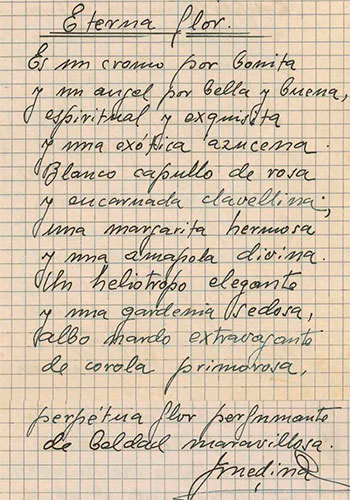 Eterna flor.
Es un cromo por bonita
y un angel por bella y buena,
espiritual y exquisita
y una exótica azucena.
Blanco capullo de rosa
y encarnada clavellina;
una margarita hermosa
y una amapola divina.
Un heliotropo elegante
y una gardenia sedosa,
albo nardo extravagante
de corola primorosa,
perpétua flor perfumante
de beldad maravillosa.
Jmedina